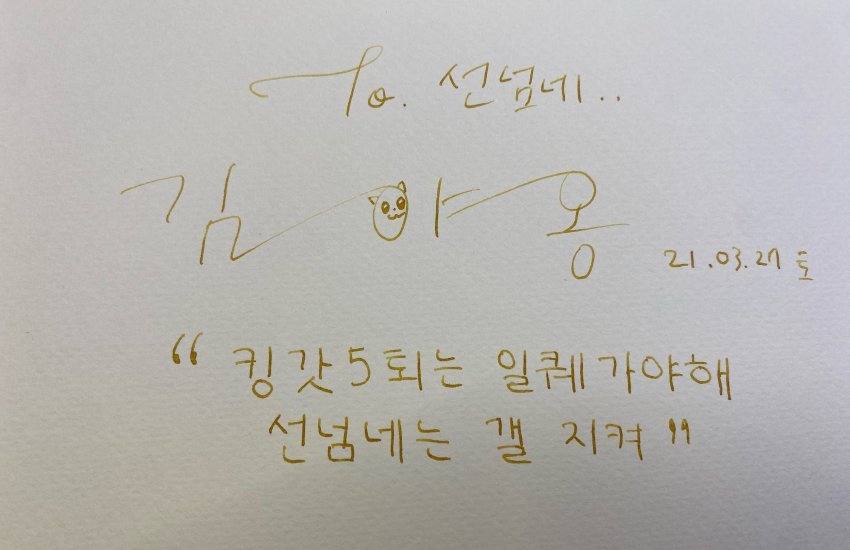 To. 선넘네..
김야옹
21.03.27 토
“킹갓5퇴는 일퀘가야해
선넘네는 갤 지켜”